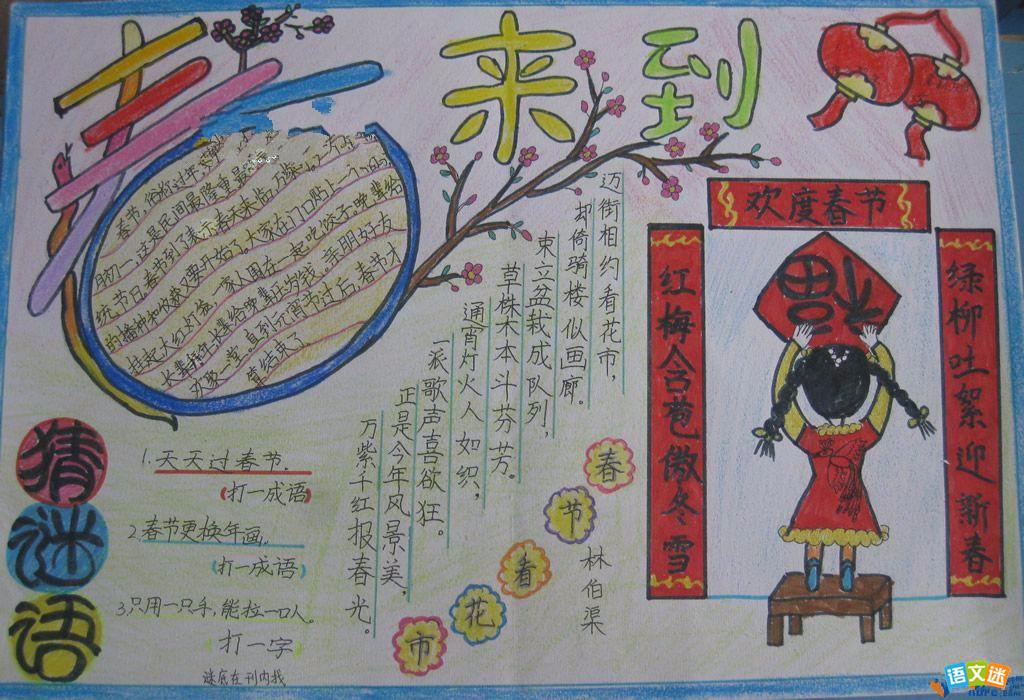 春来到
春节，俗称过年，
朋初一，这是民间最隆重最
统节日。春节到了，表示春天来临，万象
的播种和收获又要开始了。大家在门口贴上一个
挂起大红灯笼，一家人围在一起吃饺子。晚辈给
长辈拜年，长辈给晚辈压岁钱。亲朋好友
欢聚一堂。直到元宵节过后，春节才
算结束了
猜谜语
1.天天过春节。
（打一成语）
2.春节更换年画。
（打一成语）
3.只用一只手，能拉一口人。
打一字
谜底在刊内找
春节看花市
林伯渠
迈街相约看花市，
却倚骑楼似画廊。
束立盆栽成队列，
草株木本斗芬芳。
通宵灯火人如织，
一派歌声喜欲狂。
正是今年风景美，
万紫千红报春光。
欢度春节
红梅含苞傲冬雪
绿柳吐絮迎新春
福
语文迷